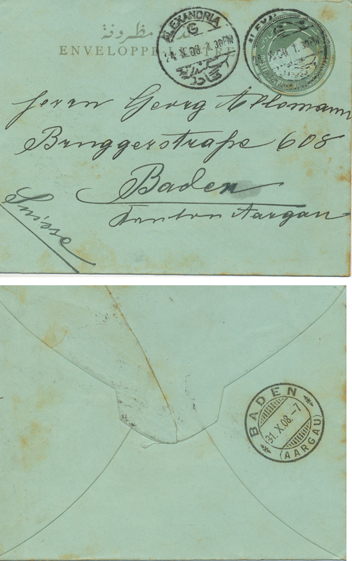 مظروفة
ENVELOPPE
ALEXANDRIA
G
24 X 08 7. 30PM
Herrn Georg
Bruggerstraße 608
Baden
Kanton Aargau
Suisse
BADEN
31.X.08.-7
(AARGAU)